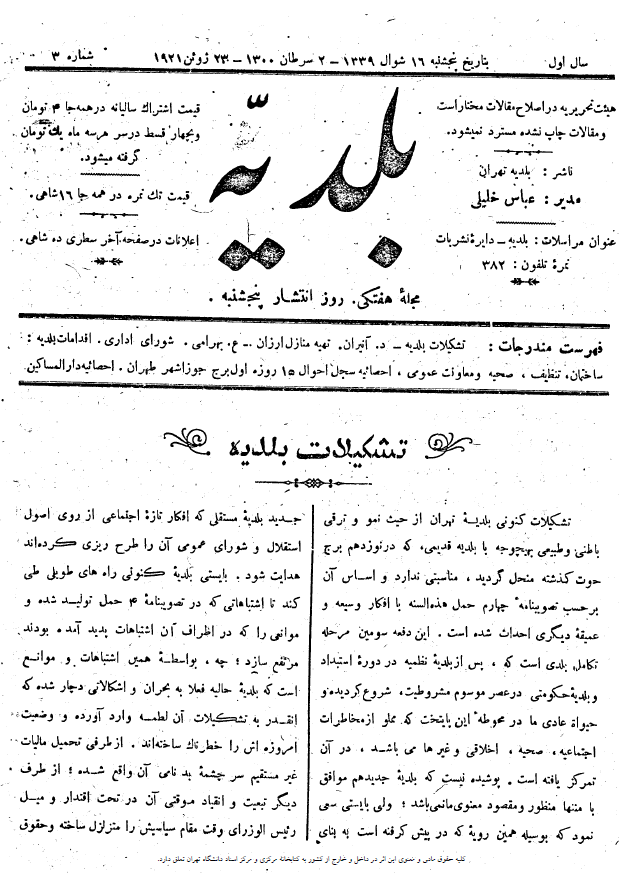 سال اول بتاریخ پنجشنبه ۱۶ شوال ۱۳۳۹ – ۲ سرطان ۱۳۰۰ – ۲۳ ژوئن ۱۹۲۱ شماره ۳
هیئت تحریریه در اصلاح مقالات مختار است
و مقالات چاپ نشده مسترد نمیشود.
ناشر : بلدیه تهران
مدیر : عباس خلیلی
عنوان مراسلات : بلدیه – دایرهٔ نشریات
نمرهٔ تلفون : ۳۸۲
بلدیّه
قیمت اشتراك سالیانه در همه جا ۴ تومان
و بچهار قسط در سر هر سه ماه یك تومان
گرفته میشود.
قیمت تك نمره در همه جا ۱۶ شاهی.
اعلانات در صفحه آخر سطری ده شاهی.
مجلهٔ هفتگی. روز انتشار پنجشنبه .
فهرست مندرجات : تشکیلات بلدیه – د. آنیران. تهیه منازل ارزان – ع. بهرامی. شورای اداری. اقدامات بلدیه :
ساختمان، تنظیف ، صحیه ومعاونت عمومی ، احصائیه سجل احوال ۱۵ روزه اول برج جوزا شهر طهران. احصائیه دار المساکین
تشکیلات بلدیه
تشکیلات کنونی بلدیهٔ تهران از حیث نمو و ترقی
باطنی و طبیعی بهیچوجه با بلدیه قدیمی، که در نوزدهم برج
حوت گذشته منحل گردید ، مناسبتی ندارد و اساس آن
بر حسب تصویبنامهٔ چهارم حمل هذه السنه با افکار وسیعه و
عمیقهٔ دیگری احداث شده است . این دفعه سومین مرحله
تکامل بلدی است که ، پس از بلدیهٔ نظمیه در دورهٔ استبداد
و بلدیهٔ حکومتی در عصر موسوم مشروطیت، شروع کردیده و
حیواة عادی ما در محوطهٔ این پایتخت که مملو از مخاطرات
اجتماعیه ، صحیه ، اخلاقی و غیرها می باشد ، در آن
تمرکز یافته است . پوشیده نیست که بلدیهٔ جدید هم موافق
با منتها منظور و مقصود معنوی ما نمی باشد ؛ ولی بایستی سعی
نمود که بوسیله همین رویهٔ که در پیش گرفته است به بنای
جدید بلدیهٔ مستقلی که افکار تازهٔ اجتماعی از روی اصول
استقلال و شورای عمومی آن را طرح ریزی کرده‌اند
هدایت شود . بایستی بلدیهٔ کنونی راه های طویلی طی
کند تا اشتباهاتی که در تصویبنامهٔ ۴ حمل تولید شده و
موانعی را که در اطراف آن اشتباهات پدید آمده بودند
مرتفع سازد ؛ چه ، بواسطهٔ همین اشتباهات و موانع
است که بلدیهٔ حالیه فعلا به بحران و اشکالاتی دچار شده که
انقدر به تشکیلات آن لطمه وارد آورده و وضعیت
امروزه اش را خطرناك ساخته‌اند . از طرفی تحمیل مالیات
غیر مستقیم سر چشمهٔ بد نامی آن واقع شده ؛ از طرف
دیگر تبعیت و انقیاد موقتی آن در تحت اقتدار و میل
رئیس الوزرای وقت مقام سیاسیش را متزلزل ساخته و حقوق
کلیه حقوق مادی و معنوی این اثر در داخل و خارج از کشور به کتابخانهٔ مرکزی و مرکز اسناد دانشگاه تهران تعلق دارد.